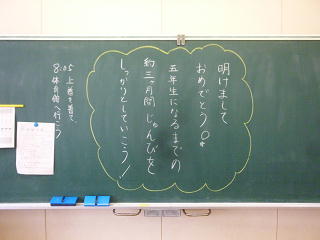 明けまして
おめでとう。
五年生になるまでの
約三ヶ月間じゅんびを
しっかりとしていこう!
8:05 上着を着て、
体育館へ行こう